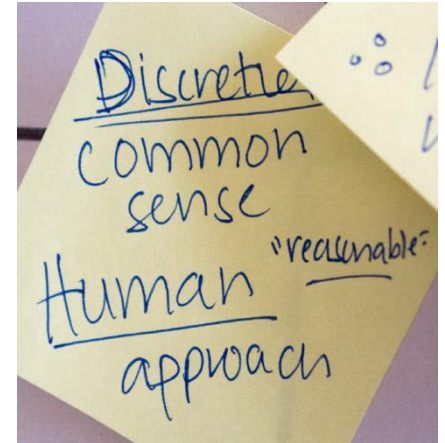 Discretie
common
sense
"reasonable"
Human
approach